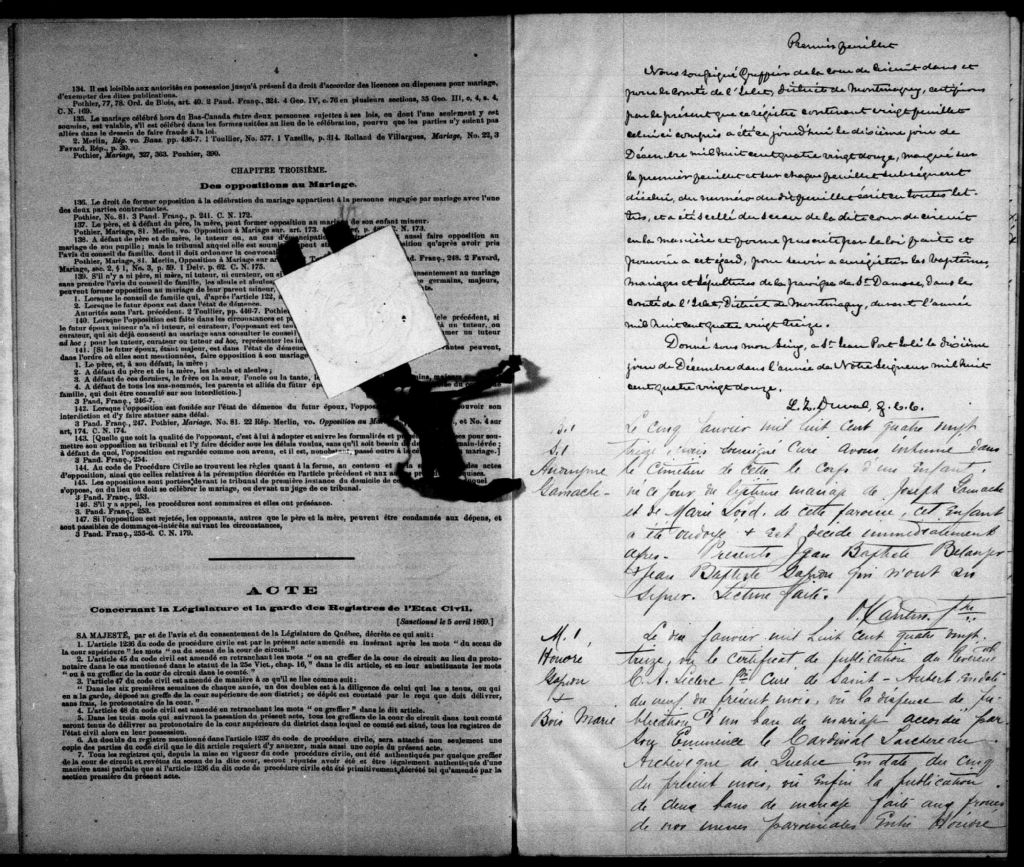 4
134. Il est loisible aux autorités en possession jusqu'à présent du droit d'accorder des licences ou dispenses pour mariage,
d'exempter des dites publications.
Pothier, 77, 78. Ord. de Blois, art. 40. 2 Pand. Franç., 324. 4 Geo. IV, c. 76 en plusieurs sections, 35 Geo. III, c, 4, s. 4,
C. N. 169.
135. Le mariage célébré hors du Bas-Canada entre deux personnes sujettes à ses lois, ou dont l'une seulement y est
soumise, est valable, s'il est célébré dans les formes usitées au lieu de la célébration, pourvu que les parties n'y soient pas
allées dans le dessein de faire fraude à la loi.
2. Merlin, Rép. vo. Bans. pp. 436-7. 1 Toullier, No. 577. 1 Vazeille, p. 314. Rolland de Villargues, Mariage, No. 22, 3
Favard, Rép., p. 39.
Pothier, Mariage, 327, 363. Pothier, 390.
CHAPITRE TROISIÈME.
Des oppositions au Mariage.
136. Le droit de former opposition à la célébration du mariage appartient à la personne engagée par mariage avec l'une
des deux parties contractantes.
Pothier, No. 81. 3 Pand. Franç., p. 241. C. N. 172.
137. Le père, et à défaut du père, la mère, peut former opposition au mariage de son enfant mineur.
Pothier, Mariage, 81. Merlin, vo. Opposition à Mariage sur. art. 173. N. 173.
138. A défaut de père et de mère, le tuteur ou, au cas d'émancipation aussi faire opposition au
mariage de son pupille; mais le tribunal auquel elle est soumise peut opposition qu'après avoir pris
l'avis du conseil de famille, dont il doit ordonner la convocation
Pothier, Mariage, 81. Merlin, Opposition à Mariage sur d. Franç., 248. 2 Favard,
Mariage, sec. 2, § 1, No. 3, p. 59. 1 Delv. p. 62. C. N. 175.
139. S'il n'y a ni père, ni mère, ni tuteur, ni curateur, ou consentement au mariage
sans prendre l'avis du conseil de famille, les aïeuls et germains, majeurs,
peuvent former opposition au mariage de leur parent mineur,
1. Lorsque le conseil de famille qui, d'après l'article 122,
2. Lorsque le futur époux est dans l'état de démence.
Autorités sous l'art. précédent. 2 Toullier, pp. 446-7. Pothier
140. Lorsque l'opposition est faite dans les circonstances et cle précédent, si
le futur époux mineur n'a ni tuteur, ni curateur, l'opposant est à un tuteur, ou
curateur, qui ait déjà consenti au mariage sans consulter le conseil mer un tuteur
ad hoc; pour les tuteur, curateur ou tuteur ad hoc, représenter les
141. [Si le futur époux, étant majeur, est dans l'état de démence vantes peuvent,
dans l'ordre où elles sont mentionnées, faire opposition à son mariage
1. Le père, et, à son défaut, la mère;
2. A défaut du père et de la mère, les aïeuls et aïeules;
3. A défaut de ces derniers, le frère ou la sœur, l'oncle ou la tante,
4. A défaut de tous les sus-nommés, les parents et alliés du futur
famille, qui doit être consulté sur son interdiction.]
3 Pand. Franç., 246-7.
142. Lorsque l'opposition est fondée sur l'état de démence du futur époux, l'opposant pouvoir son
interdiction et d'y faire statuer sans délai.
3 Pand. Franç., 247. Pothier, Mariage, No. 81. 22 Rép. Merlin, vo. Opposition au et No. 4 sur
art. 174. C. N. 174.
143. [Quelle que soit la qualité de l'opposant, c'est à lui à adopter et suivre les formalités et pour sou-
mettre son opposition au tribunal et l'y faire décider sous les délais voulus, sans qu'il soit besoin
à défaut de quoi, l'opposition est regardée comme non avenu, et il est, nonobstant, passé outre à la célébration du mariage.]
3 Pand. Franç., 254.
144. Au code de Procédure Civile se trouvent les règles quant à la forme, au contenu des actes
d'opposition, ainsi que celles relatives à la péremption décrétée en l'article précédent et aux
145. Les oppositions sont portées devant le tribunal de première instance du domicile de auquel
s'oppose, ou du lieu où doit se célébrer le mariage, ou devant un juge de ce tribunal.
3 Pand. Franç., 253.
146. S'il y a appel, les procédures sont sommaires et elles ont préséance.
3. Pand. Franç., 253.
147. Si l'opposition est rejetée, les opposants, autres que le père et la mère, peuvent être condamnés aux dépens, et
sont passibles de dommages-intérêts suivant les circonstances.
3 Pand. Franç., 255-6. C. N. 179.
ACTE
Concernant la Législature et la garde des Registres de l'Etat Civil.
[Sanctionné le 5 avril 1869.]
SA MAJESTÉ, par et de l'avis et du consentement de la Législature de Québec, décrète ce qui suit:
1. L'article 1236 du code de procédure civile est par le présent acte amendé en insérant après les mots "du sceau de
la cour supérieure" les mots "ou du sceau de la cour de circuit."
2. L'article 45 du code civil est amendé en retranchant les mots "ou au greffier de la cour de circuit au lieu du proto-
notaire dans le cas mentionné dans le statut de la 25e Vict., chap. 16," dans le dit article, et en leur substituant les mots
"ou à un greffier de la cour de circuit dans le comté."
3. L'article 47 du code civil est amendé de manière à ce qu'il se lise comme suit:
"Dans les six premières semaines de chaque année, un des doubles est à la diligence de celui qui les a tenus, ou qui
en a la garde, déposé au greffe de la cour supérieure de son district; ce dépôt est constaté par le reçu que doit délivrer,
sans frais, le protonotaire de la cour."
4. L'article 48 du code civil est amendé en retranchant les mots "ou greffier" dans le dit article.
5. Dans les trois mois qui suivront la passation du présent acte, tous les greffiers de la cour de circuit dans tout comté
seront tenus de délivrer au protonotaire de la cour supérieure du district dans lequel ce comté est situé, tous les registres de
l'état civil alors en leur possession.
6. Au double du registre mentionné dans l'article 1237 du code de procédure civile, sera attaché non seulement une
copie des parties du code civil que le dit article requiert d'y annexer, mais aussi une copie du présent acte.
7. Tous les registres qui, depuis la mise en vigueur du code de procédure civile, ont été authentiqués par quelque greffier
de la cour de circuit et revêtus du sceau de la dite cour, seront réputés avoir été et être légalement authentiqués d'une
manière aussi parfaite que si l'article 1236 du dit code de procédure civile eût été primitivement décrété tel qu'amendé par la
section première du présent acte.
Premier feuillet
Nous soussigné Greffiers de la cour de circuit dans et
pour le comté de l'Islet, District de Montmagny, certifions
par le présent que ce régistre contenant vingt feuillets
celui ci compris a été ce jourd'hui le dixième jour de
Décembre mil huit cent quatre vingt douze, marqué sur
le premier feuillet et sur chaque feuillet subséquent
d'icelui, du numéro du dit feuillet écrit en toutes let-
tres, et a été scellé du sceau de la dite cour de circuit
en la manière et forme prescrite par la loi faite et
pourvue a cet égard, pour servir a enregistrer les baptêmes,
mariages et sépultures de la paroisse de St. Damase, dans le
comté de l'Islet, District de Montmagny, durant l'année
mil huit cent quatre vingt treize.
Donné sous mon seing, a St. Jean Port Joli le dixième
jour de Décembre dans l'année de Notre Seigneur mil huit
cent quatre vingt douze.
L. Z. Duval, G. C. C.
S. 1
Anonyme
Gamache
Le cinq Janvier mil huit cent quatre vingt
treize, nous soussigné Curé avons inhumé dans
le Cimetière de cette le corps d'un enfant.
né ce jour du légitime mariage de Joseph Gamache
et de Marie de cette paroisse, cet enfant
a été ondoyé & est décédé immédiatement
après. Présents Jean Baptiste Bélanger
& Jean Baptiste Gagnon qui n'ont su
signer. Lecture faite.
Ptre
M. 1
Honoré
Gagnon
&
Bois Marie
Le dix Janvier mil huit cent quatre vingt
treize, vu le certificat de publication du Révérend
C. A. Leclerc ptre Curé de Saint-Aubert en date
du neuf du présent mois, vu la dispense de pu-
blication d'un ban de mariage accordée par
Son Eminence le Cardinal Taschereau
Archevêque de Québec en date du cinq
du présent mois, vu enfin la publication
de deux bans de mariage faite aux prônes
de nos messes paroissiales Entre Honoré